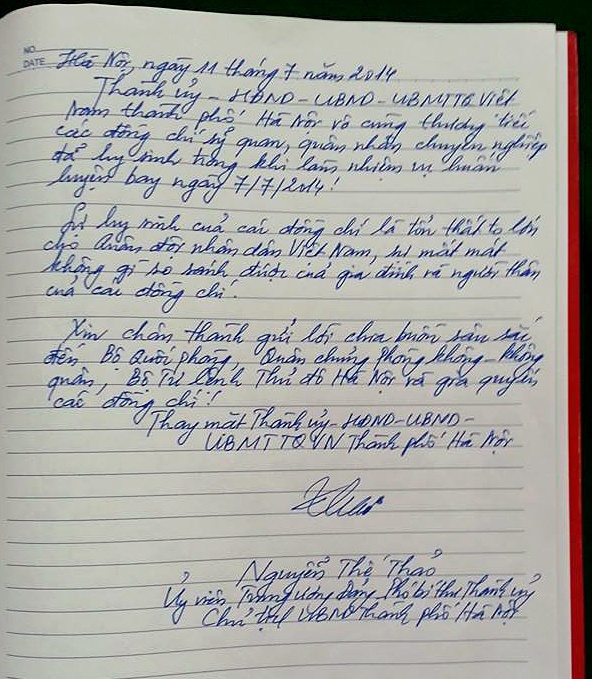 NO.
DATE Hà Nội, ngày 11 tháng 7 năm 2014
Thành ủy - HĐND - UBND - UBMTTQ Việt
Nam thành phố Hà Nội vô cùng thương tiếc
các đồng chí sỹ quan, quân nhân chuyên nghiệp
đã hy sinh trong khi làm nhiệm vụ huấn
luyện bay ngày 7/7/2014!
Sự hy sinh của các đồng chí là tổn thất to lớn
cho Quân đội nhân dân Việt Nam, sự mất mát
không gì so sánh được của gia đình và người thân
của các đồng chí.
Xin chân thành gửi lời chia buồn sâu sắc
đến Bộ Quốc phòng, Quân chủng Phòng không - Không
quân, Bộ Tư lệnh Thủ đô Hà Nội và gia quyến
các đồng chí!
Thay mặt Thành ủy - HĐND - UBND -
UBMTTQVN Thành phố Hà Nội
Nguyễn Thế Thảo
Ủy viên Trung ương Đảng Phó bí thư Thành ủy
Chủ tịch UBND Thành phố Hà Nội